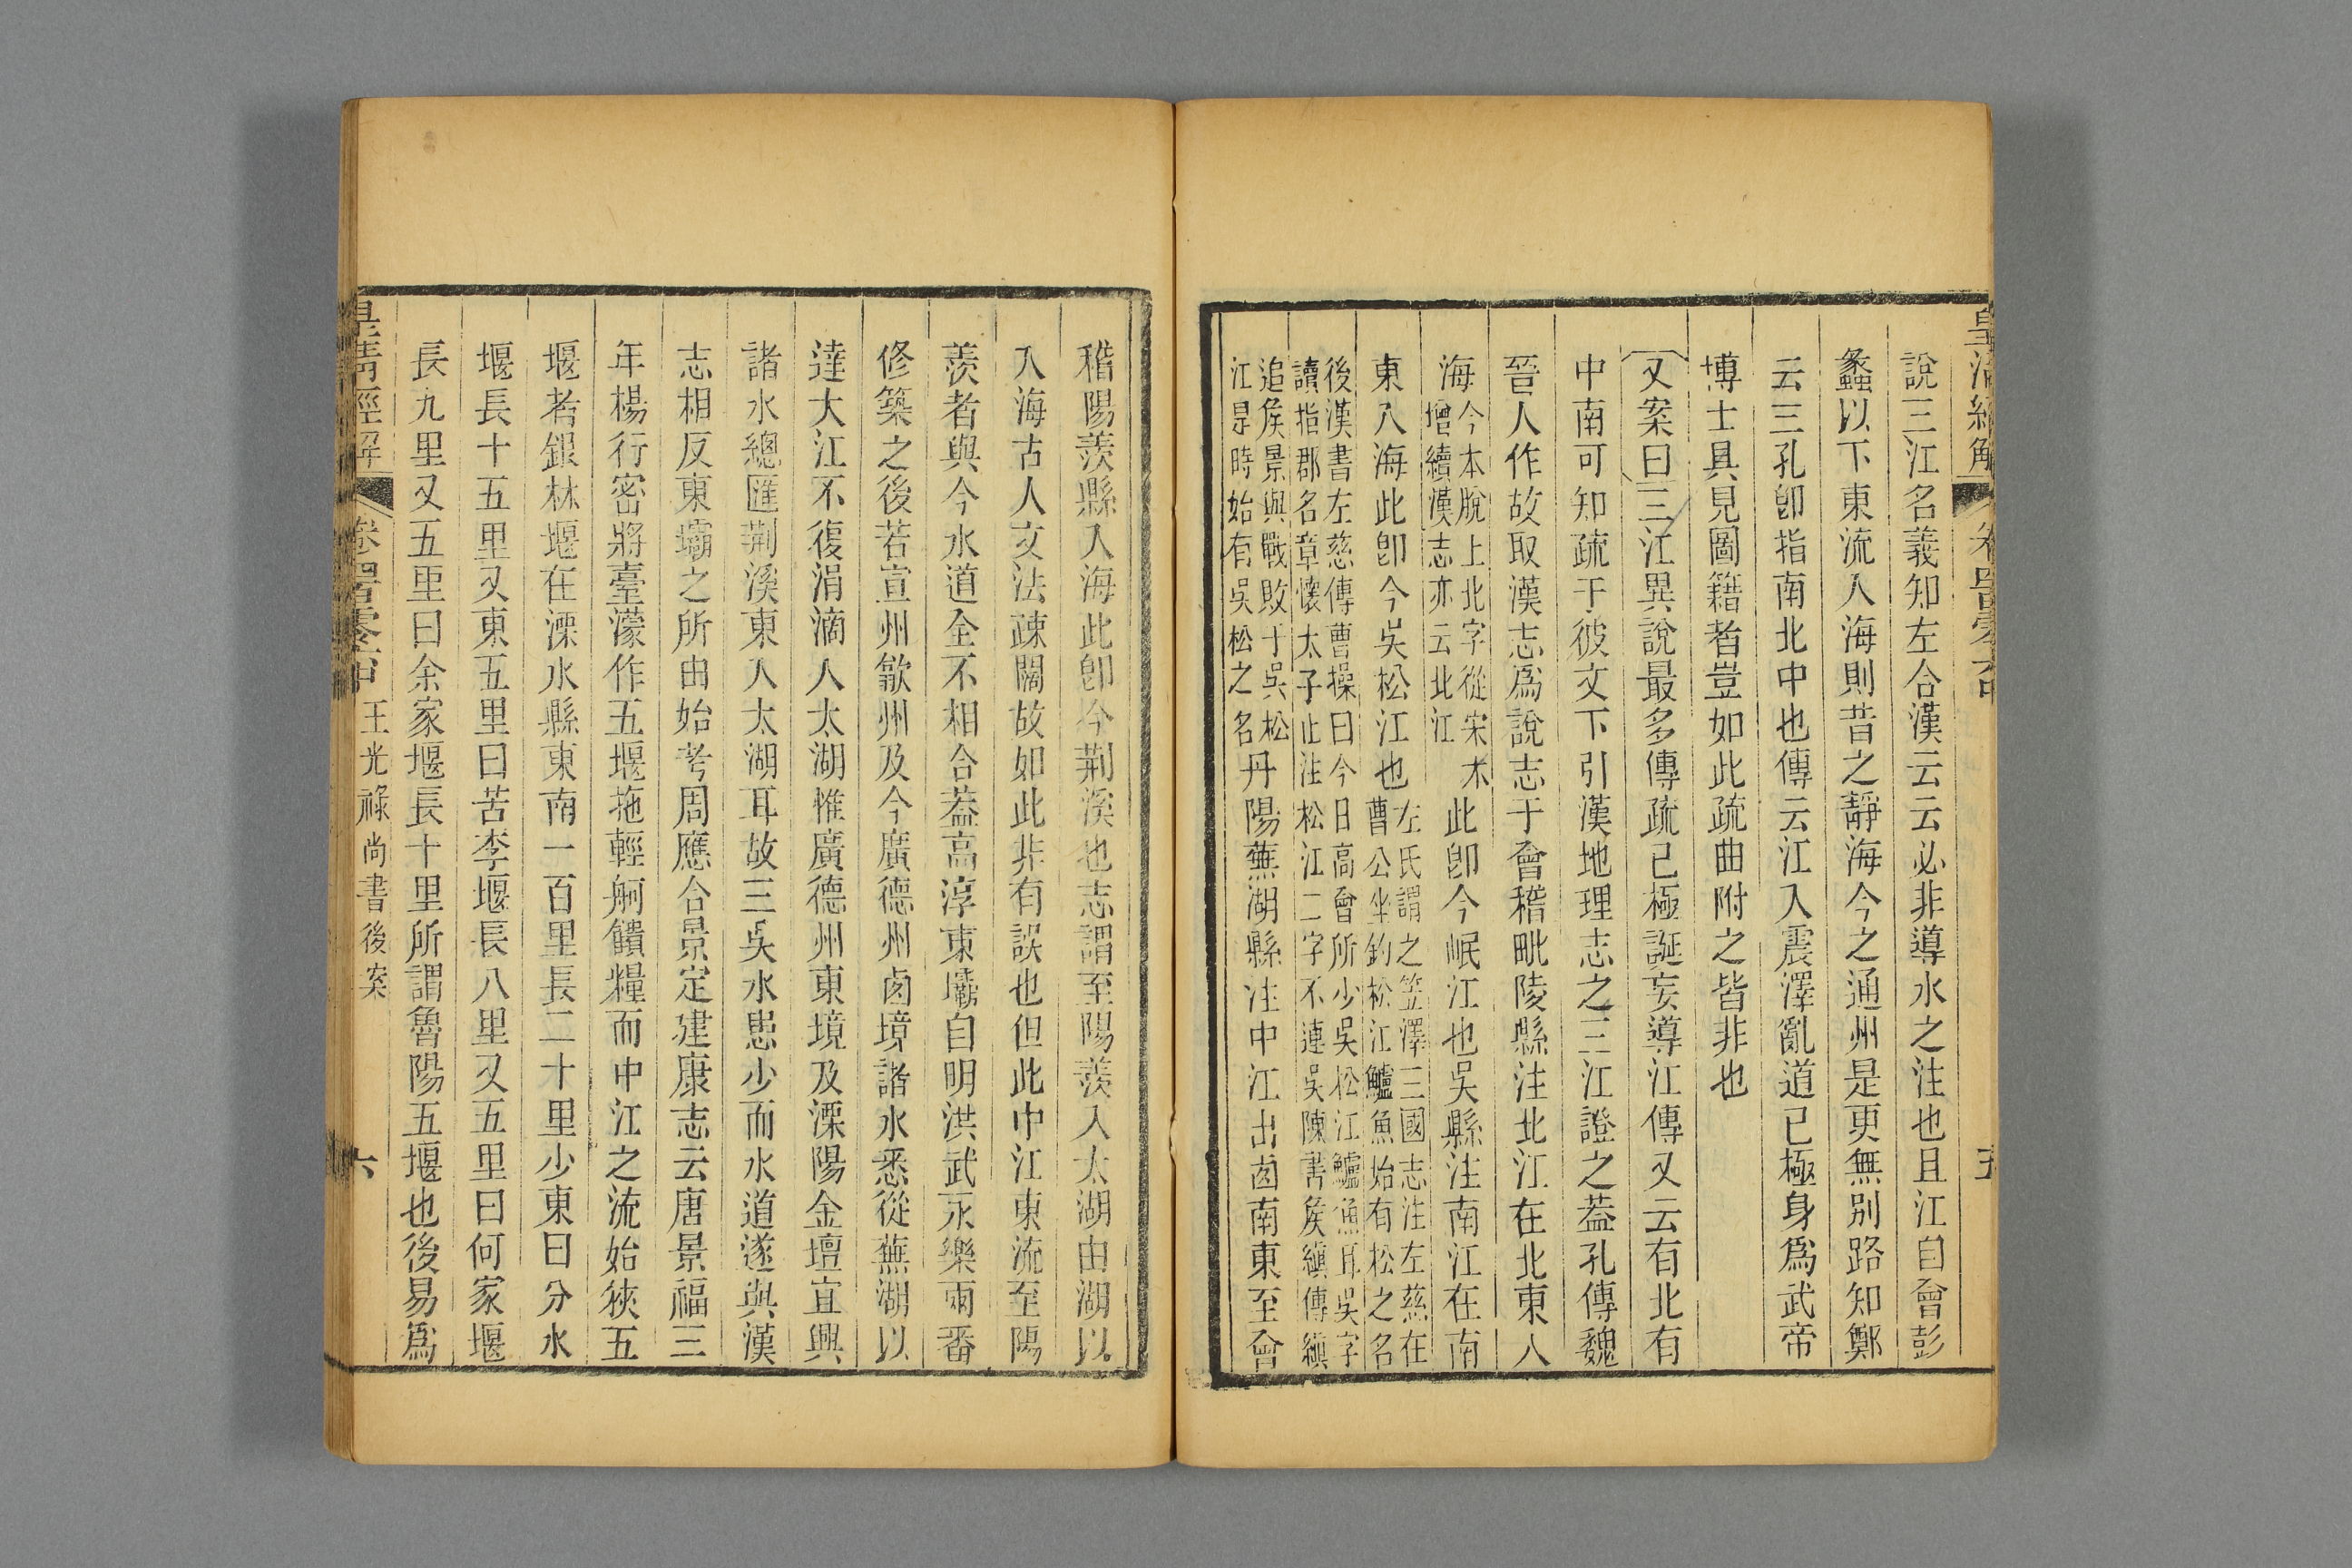 說三江名義知左合漢云云必非導水之注也且江自會彭
蠡以下東流入海則昔之靜海今之通州是更無別路知鄭
云三孔卽指南北中也傳云江入震澤亂道已極身爲武帝
博士具見圖籍者豈如此疏曲附之皆非也
又案曰三江異說最多傳疏已極誕妄導江傳又云有北有
中南可知疏于彼文下引漢地理志之三江證之葢孔傳魏
晉人作故取漢志爲說志于會稽毗陵縣注北江在北東入
海今本脫上北字從宋本
增續漢志亦云北江此卽今岷江也吳縣注南江在南
東入海此卽今吳松江也左氏謂之笠澤三國志注左慈在
曹公坐釣松江鱸魚始有松之名
後漢書左慈傳曹操曰今日高會所少吳松江鱸魚耳吳字
讀指郡名章懷太子止注松江二字不連吳陳書矦縝傳縝
追矦景與戰敗于吳松
江是時始有吳松之名丹陽蕪湖縣注中江出卤南東至會
稽陽羨縣入海此卽今荆溪也志謂至陽羨入太湖由湖以
入海古人文法疎闊故如此非有誤也但此中江東流至陽
羨者與今水道全不相合葢高淳東壩自明洪武永樂兩番
修築之後若宣州歙州及今廣德州卤境諸水悉從蕪湖以
達大江不復涓滴入太湖惟廣德州東境及溧陽金壇宜興
諸水總匯荆溪東入太湖耳故三吳水患少而水道遂與漢
志相反東壩之所由始考周應合景定建康志云唐景福三
年楊行密將臺濛作五堰拖輕舸饋糧而中江之流始狹五
堰者銀林堰在溧水縣東南一百里長二十里少東曰分水
堰長十五里又東五里曰苦李堰長八里又五里曰何家堰
長九里又五里曰余家堰長十里所謂魯陽五堰也後易爲
皇淸經解
王光祿尚書後案
六